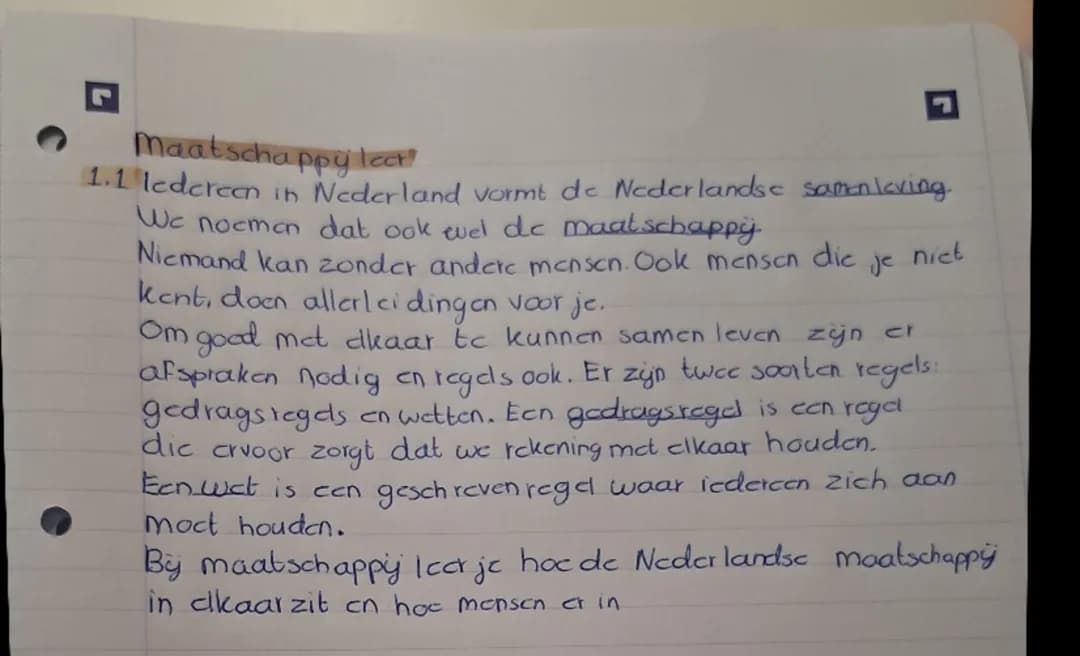 Maatschappij leer
1.1 Iedereen in Nederland vormt de Nederlandse samenleving.
We noemen dat ook wel de maatschappij.
Niemand kan zonder andere mensen. Ook mensen die je niet
kent, doen allerlei dingen voor je.
Om goed met elkaar te kunnen samen leven zijn er
afspraken nodig en regels ook. Er zijn twee soorten regels:
gedragsregels en wetten. Een gedragsregel is een regel
die ervoor zorgt dat we rekening met elkaar houden.
Een wet is een geschreven regel waar iedereen zich aan
moet houden.
Bij maatschappij leer je hoe de Nederlandse maatschappij
in elkaar zit en hoe mensen er in